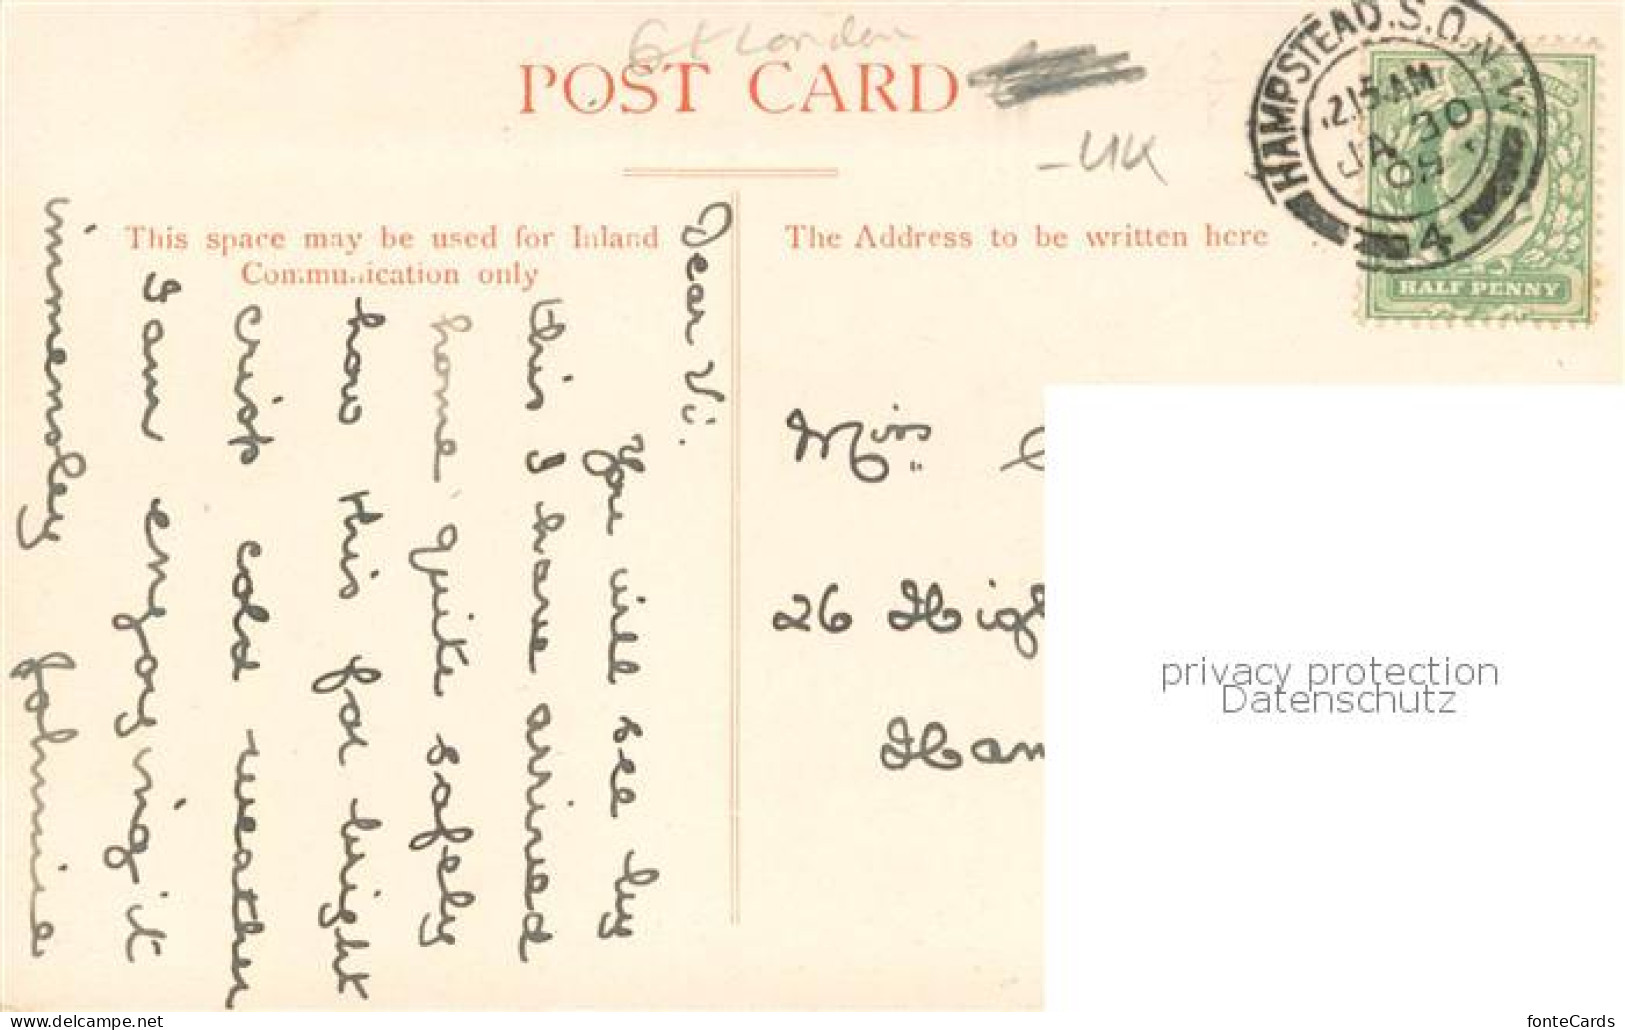 Gt London
POST CARD
- UK
HAMPSTEAD. S.O. N.W.
12.15 AM
JA 30
09
4
HALF PENNY
This space may be used for Inland
Communication only
The Address to be written here
Dear Vi.
You will see by
this I have arrived
home quite safely
how this for bright
crisp cold weather
I am enjoying it
immensley Johnnie
Miss
26 High
Ham
privacy protection
Datenschutz
www.delcampe.net
fonteCards